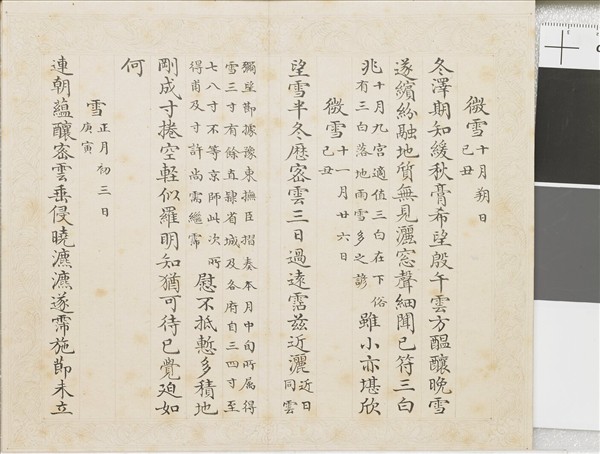 微雪十月朔日
己丑
冬澤期知緩秋膏希望殷午雲方醖釀晚雪
遂繽紛融地質無見灑窓聲細聞已符三白
兆
十月九宮適值三白在下俗
有三白落地雨雪多之諺
雖小亦堪欣
微雪十一月廿六日
己丑
望雪半冬厯密雲三日過遠霑茲近灑
近日
同雲
彌望節據豫東撫臣摺奏本月中旬所属得
雪三寸有餘直隸省城及各府自三四寸至
七八寸不等京師此次所
得甫及寸許尚需繼霈
慰不抵慙多積地
剛成寸捲空輕似羅明知猶可待已覺迫如
何
雪正月初三日
庚寅
連朝蘊釀密雲垂侵曉瀌瀌遂霈施節未立